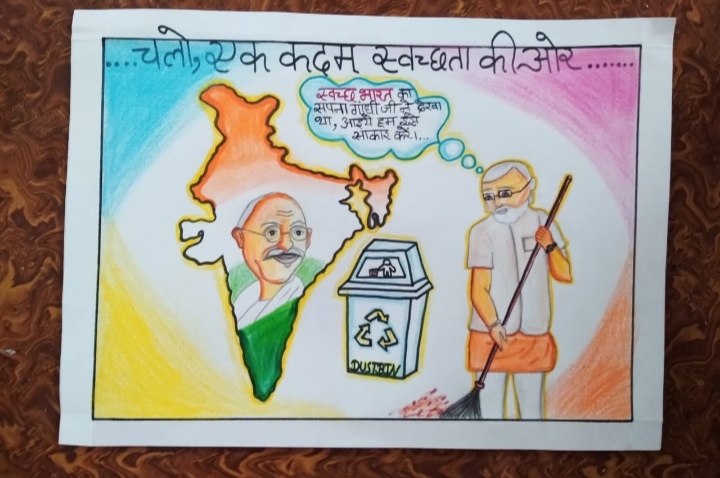 ....चलो, एक कदम स्वच्छता की ओर.......
स्वच्छ भारत का
सपना गाँधी जी ने देखा
था, आइये हम इसे
साकार करें।...
DUSTBIN